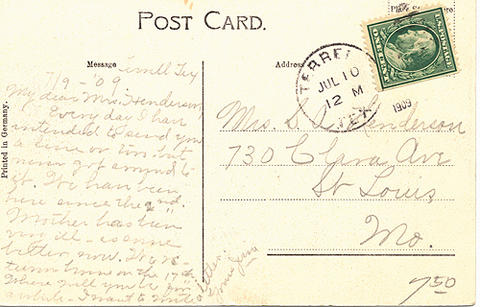 POST CARD.
Message
Address
Printed in Germany.
Terrell Tex
7/9 - '09
My dear Mrs. Henderson
Every day I have
intended to send you
a line or two but
never got around to
it. We have been
here since the 2nd.
Mother has been
very ill - is some
better, now. We re-
turn home on the 17th
Where will you be
I want to write
letter.
TERRELL
JUL 10
12 M
TEX.
1909
Mrs. S. A. Henderson
730 Clara Ave
St Louis
Mo.
750